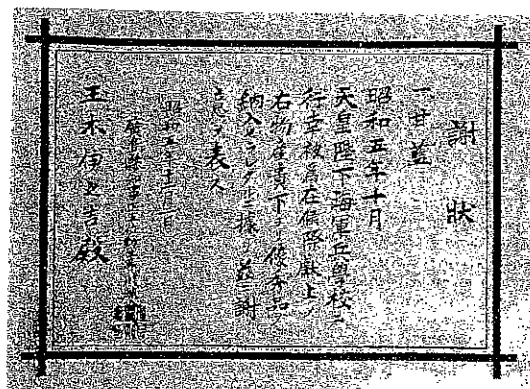 謝狀
一 甘藍
昭和五年十月
天皇陛下海軍兵學校ニ
行幸被為在候際獻上ノ
右物產貴下ヨリ優秀品ノ
納入セラレタルニ據リ茲ニ謝
意ヲ表ス
昭和五年十一月一日
玉木伊之吉殿